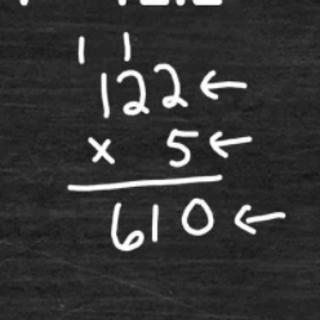 1 1
122 ←
x 5 ←
610 ←